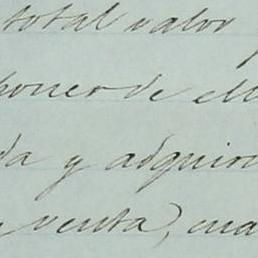 total valor
poner de ell
da y adquir
venta, cua